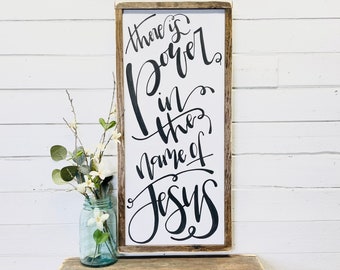 there is
power
in
the
name of
Jesus